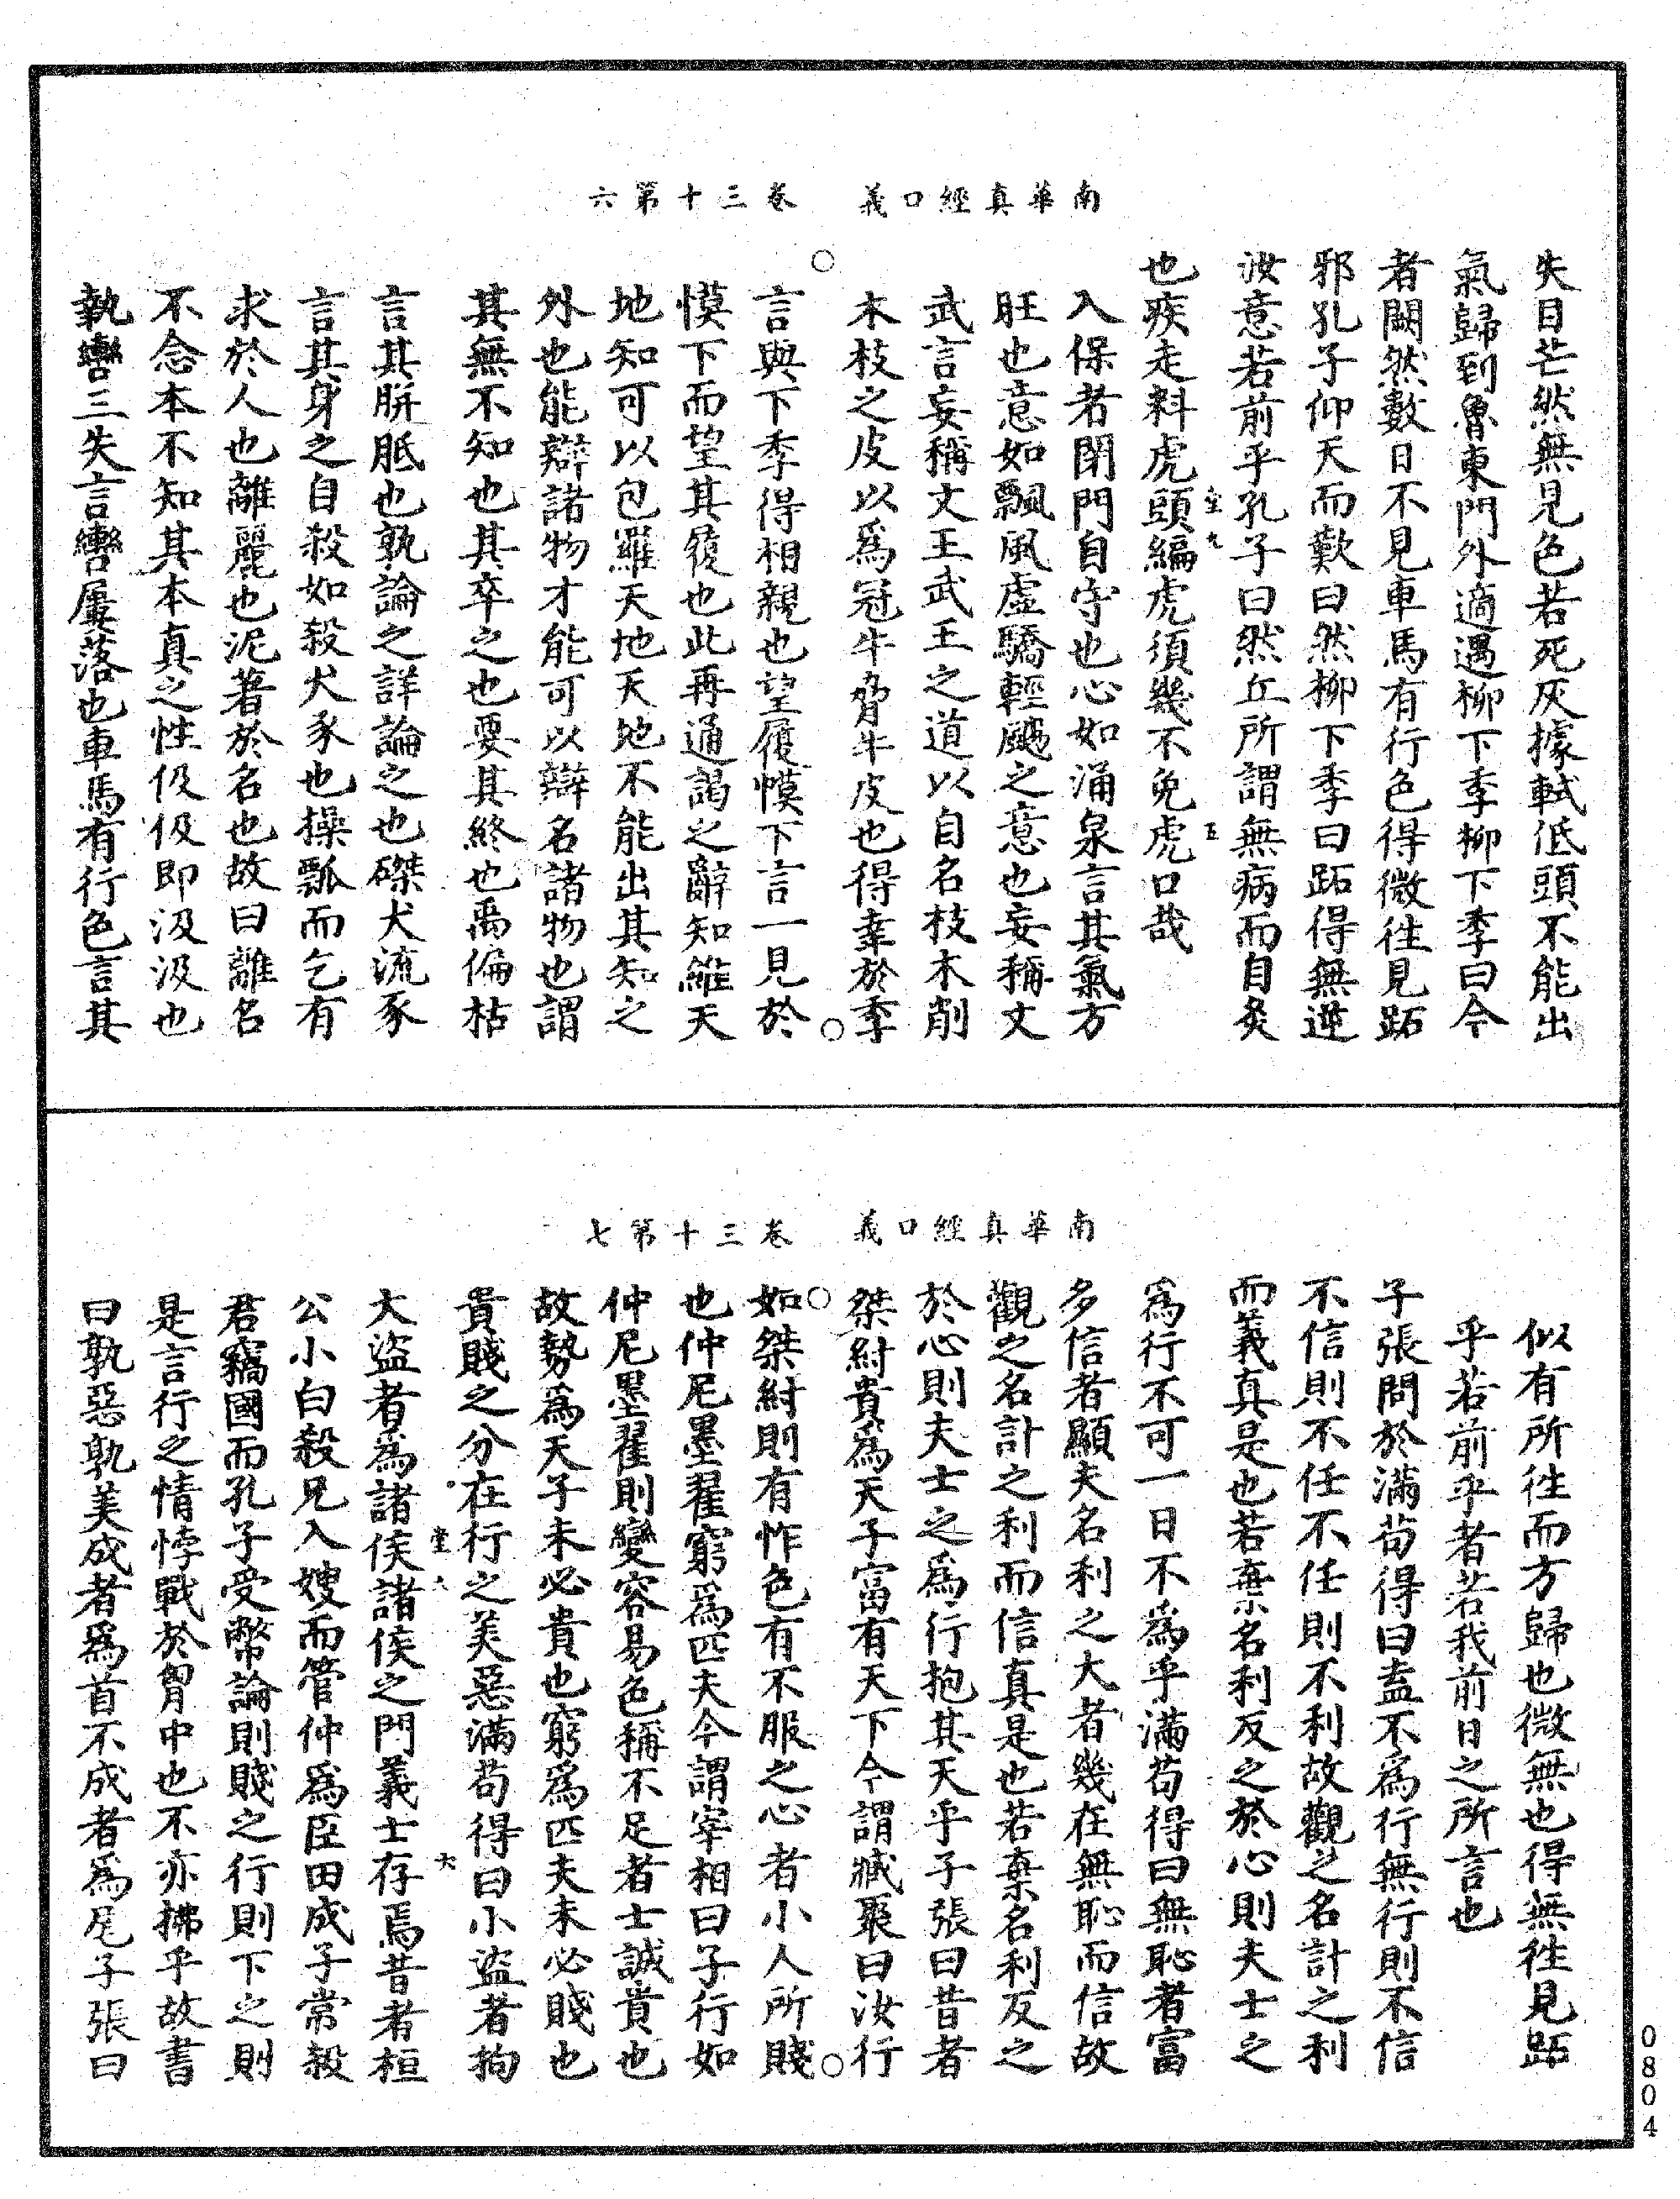 南華真經口義　卷三十第六
失目芒然無見色若死灰據軾低頭不能出
氣歸到魯東門外適遇柳下季柳下季曰今
者闕然數日不見車馬有行色得微往見跖
邪孔子仰天而歎曰然柳下季曰跖得無逆
汝意若前乎孔子曰然丘所謂無病而自灸
也疾走料虎頭編虎須幾不免虎口哉
入保者閉門自守也心如涌泉言其氣方
旺也意如飄風虛驕輕颺之意也妄稱文
武言妄稱文王武王之道以自名枝木削
木枝之皮以爲冠牛脅牛皮也得幸於季
言與下季得相親也望履幙下言一見於
幙下而望其履也此再通謁之辭知維天
地知可以包羅天地天地不能出其知之
外也能辯諸物才能可以辯名諸物也謂
其無不知也其卒之也要其終也禹偏枯
言其胼胝也孰論之詳論之也磔犬流豕
言其身之自殺如殺犬豕也操瓢而乞有
求於人也離麗也泥著於名也故曰離名
不念本不知其本真之性伋伋即汲汲也
執轡三失言轡屢落也車馬有行色言其
南華真經口義　卷三十第七
似有所往而方歸也微無也得無往見跖
乎若前乎者若我前日之所言也
子張問於滿苟得曰盍不爲行無行則不信
不信則不任不任則不利故觀之名計之利
而義真是也若棄名利反之於心則夫士之
爲行不可一日不爲乎滿苟得曰無恥者富
多信者顯夫名利之大者幾在無恥而信故
觀之名計之利而信真是也若棄名利反之
於心則夫士之爲行抱其天乎子張曰昔者
桀紂貴爲天子富有天下今謂臧聚曰汝行
如桀紂則有怍色有不服之心者小人所賤
也仲尼墨翟窮爲匹夫今謂宰相曰子行如
仲尼墨翟則變容易色稱不足者士誠貴也
故勢爲天子未必貴也窮爲匹夫未必賤也
貴賤之分在行之美惡滿苟得曰小盜者拘
大盜者爲諸侯諸侯之門義士存焉昔者桓
公小白殺兄入嫂而管仲爲臣田成子常殺
君竊國而孔子受幣論則賤之行則下之則
是言行之情悖戰於胷中也不亦拂乎故書
曰孰惡孰美成者爲首不成者爲尾子張曰
0804